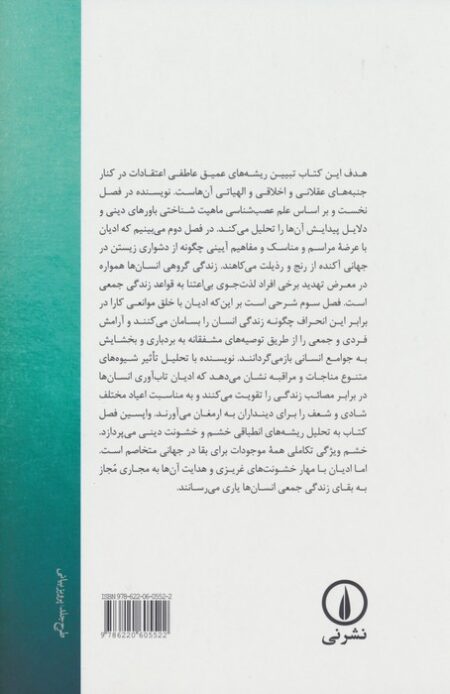 هدف این کتاب تبیین ریشه‌های عمیق عاطفی اعتقادات در کنار
جنبه‌های عقلانی و اخلاقی و الهیاتی آن‌هاست. نویسنده در فصل
نخست و بر اساس علم عصب‌شناسی ماهیت شناختی باورهای دینی و
دلایل پیدایش آن‌ها را تحلیل می‌کند. در فصل دوم می‌بینیم که ادیان
با عرضهٔ مراسم و مناسک و مفاهیم آیینی چگونه از دشواری زیستن در
جهانی آکنده از رنج و رذیلت می‌کاهند. زندگی گروهی انسان‌ها همواره
در معرض تهدید برخی افراد لذت‌جوی بی‌اعتنا به قواعد زندگی جمعی
است. فصل سوم شرحی است بر این‌که ادیان با خلق موانعی کارا در
برابر این انحراف چگونه زندگی انسان را بسامان می‌کنند و آرامش
فردی و جمعی را از طریق توصیه‌های مشفقانه به بردباری و بخشایش
به جوامع انسانی بازمی‌گردانند. نویسنده با تحلیل تأثیر شیوه‌های
متنوع مناجات و مراقبه نشان می‌دهد که ادیان تاب‌آوری انسان‌ها
در برابر مصائب زندگی را تقویت می‌کنند و به مناسبت اعیاد مختلف
شادی و شعف را برای دینداران به ارمغان می‌آورند. واپسین فصل
کتاب به تحلیل ریشه‌های انطباقی خشم و خشونت دینی می‌پردازد.
خشم ویژگی تکاملی همهٔ موجودات برای بقا در جهانی متخاصم است.
اما ادیان با مهار خشونت‌های غریزی و هدایت آن‌ها به مجاری مُجاز
به بقای زندگی جمعی انسان‌ها یاری می‌رسانند.
طرح جلد: پرویز بیانی
ISBN 978-622-06-0552-2
9 786220 605522
نشر نی